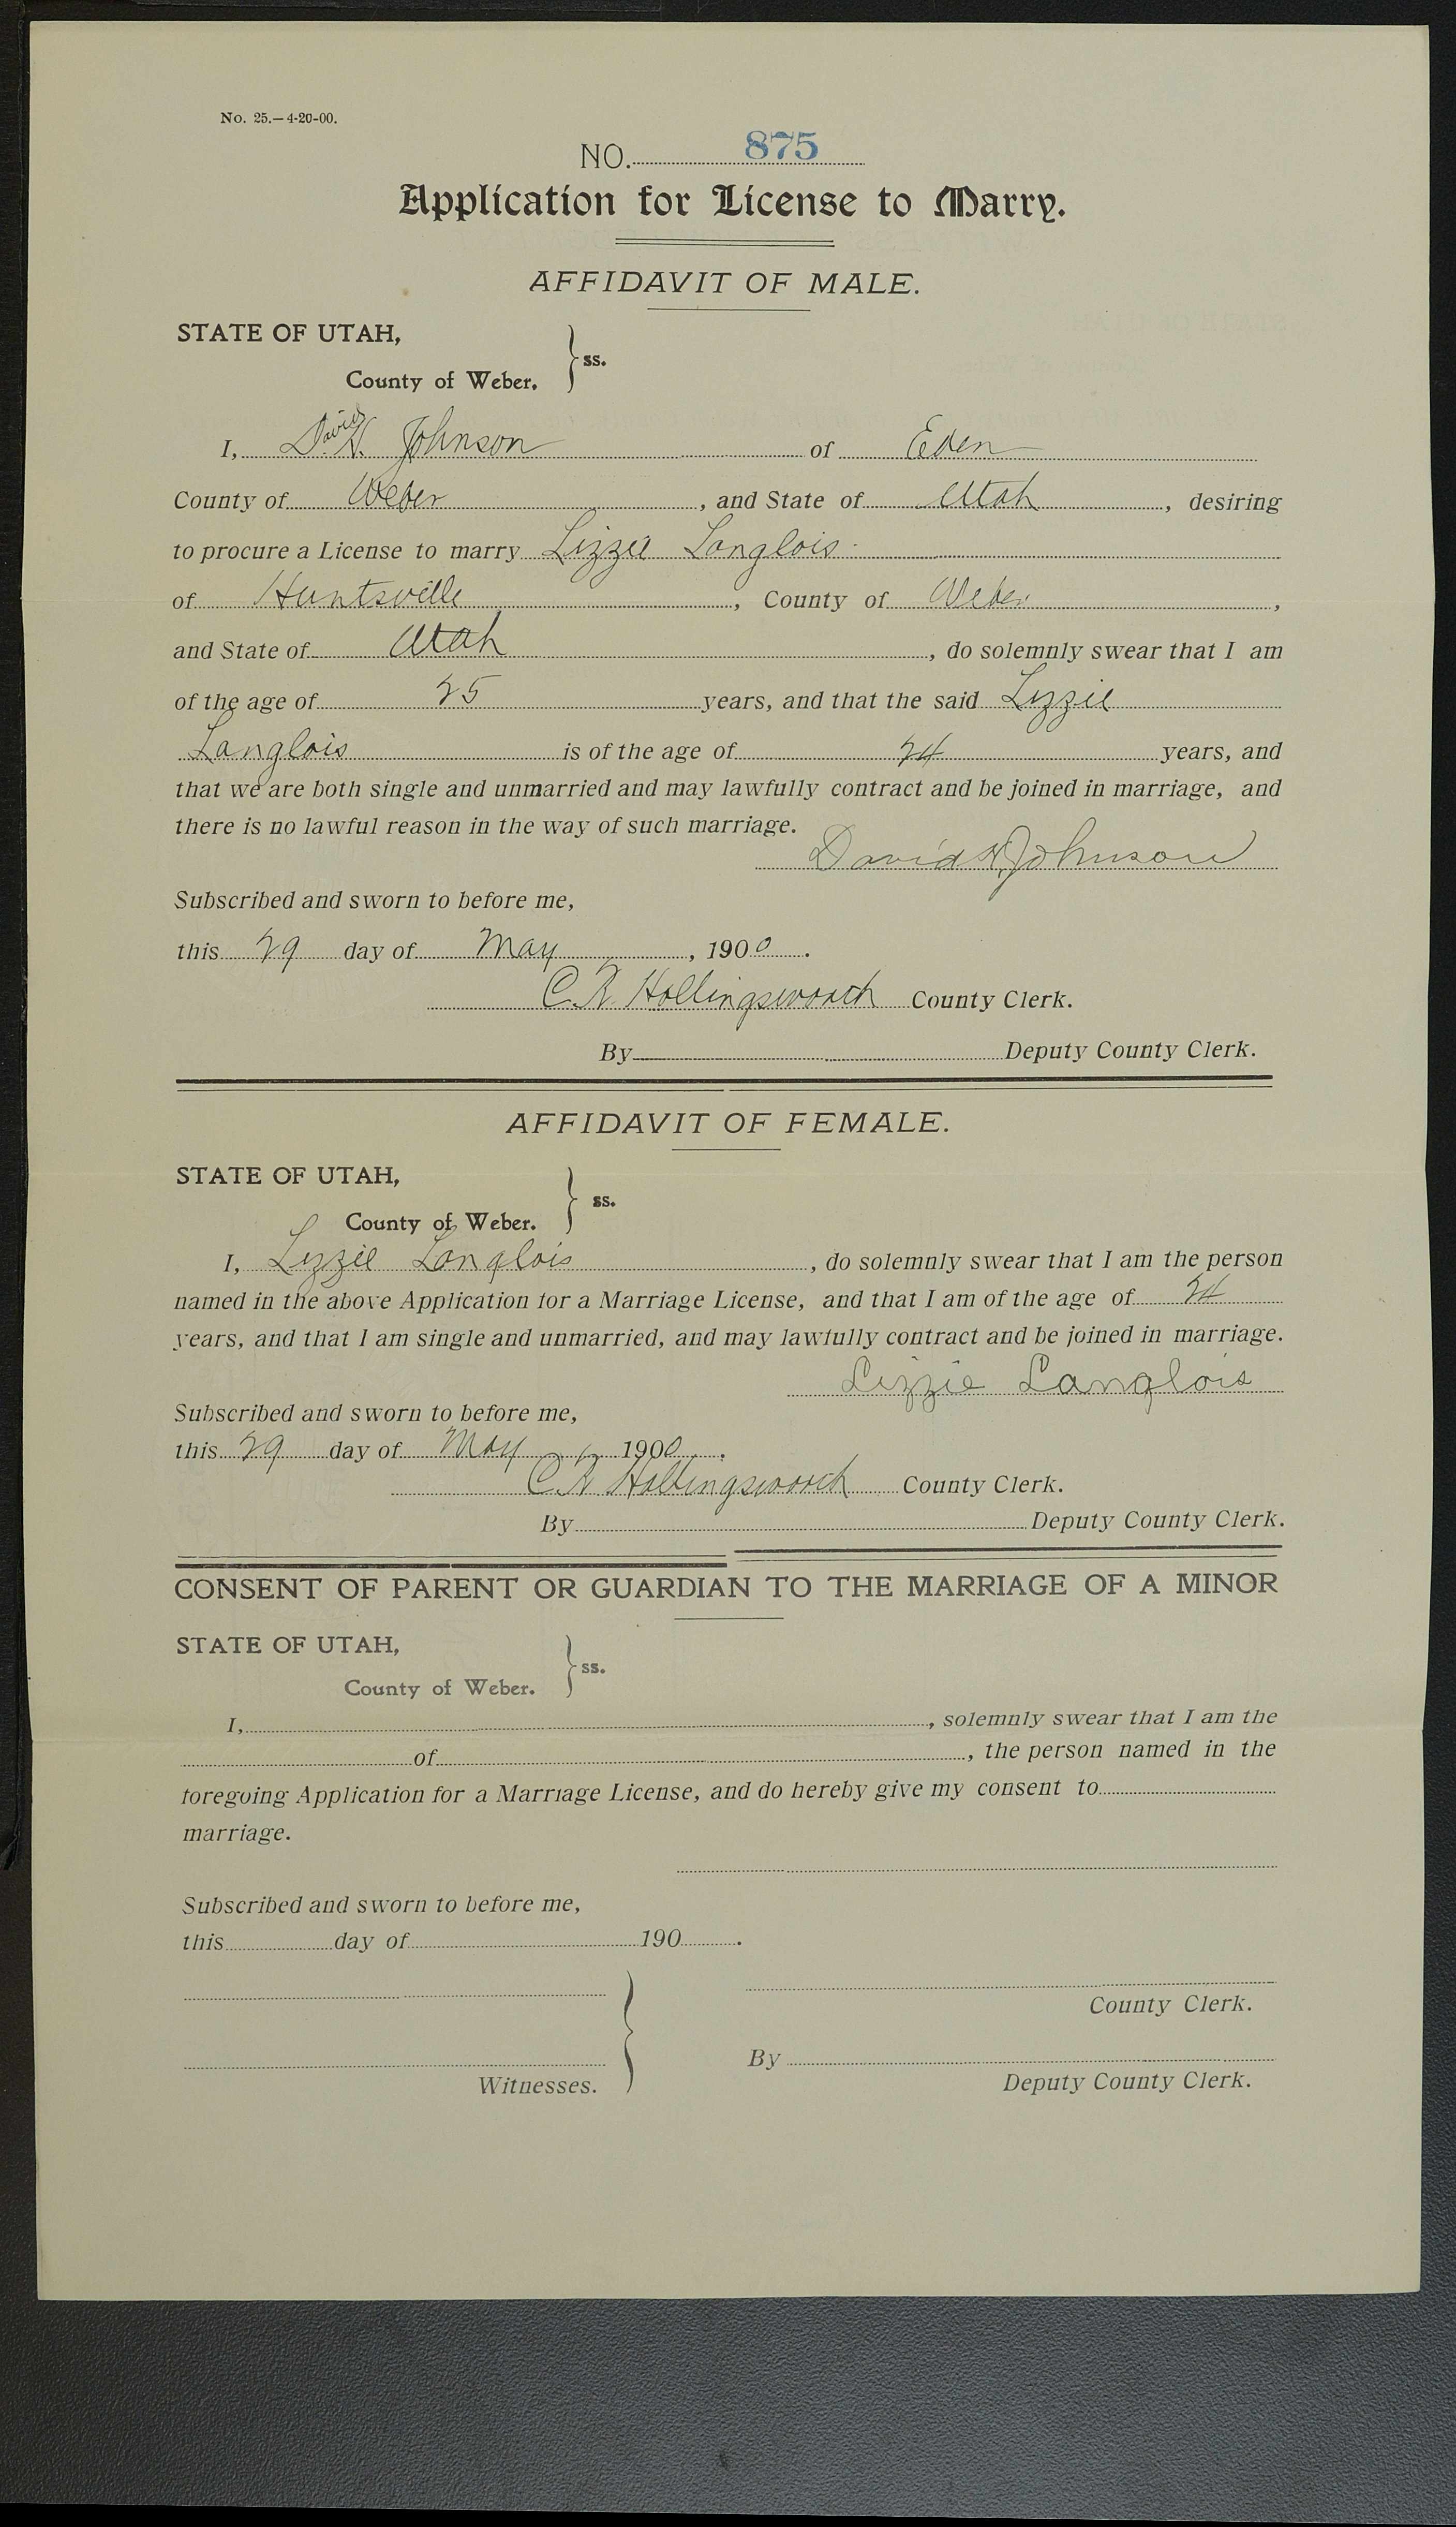 No. 25.—4-20-00.
NO. 875
Application for License to Marry.
AFFIDAVIT OF MALE.
STATE OF UTAH,
County of Weber. } ss.
David
I, D. H. Johnson of Eden
County of Weber, and State of Utah, desiring
to procure a License to marry Lizzie Langlois
of Huntsville, County of Weber,
and State of Utah, do solemnly swear that I am
of the age of 25 years, and that the said Lizzie
Langlois is of the age of 24 years, and
that we are both single and unmarried and may lawfully contract and be joined in marriage, and
there is no lawful reason in the way of such marriage.
David H. Johnson
Subscribed and sworn to before me,
this 29 day of May, 1900.
C. R. Hollingsworth County Clerk.
By Deputy County Clerk.
AFFIDAVIT OF FEMALE.
STATE OF UTAH,
County of Weber. } ss.
I, Lizzie Langlois, do solemnly swear that I am the person
named in the above Application for a Marriage License, and that I am of the age of 24
years, and that I am single and unmarried, and may lawfully contract and be joined in marriage.
Lizzie Langlois
Subscribed and sworn to before me,
this 29 day of May, 1900.
C. R. Hollingsworth County Clerk.
By Deputy County Clerk.
CONSENT OF PARENT OR GUARDIAN TO THE MARRIAGE OF A MINOR
STATE OF UTAH,
County of Weber. } ss.
I, , solemnly swear that I am the
of , the person named in the
foregoing Application for a Marriage License, and do hereby give my consent to
marriage.
Subscribed and sworn to before me,
this day of 190 .
County Clerk.
By
Witnesses. Deputy County Clerk.